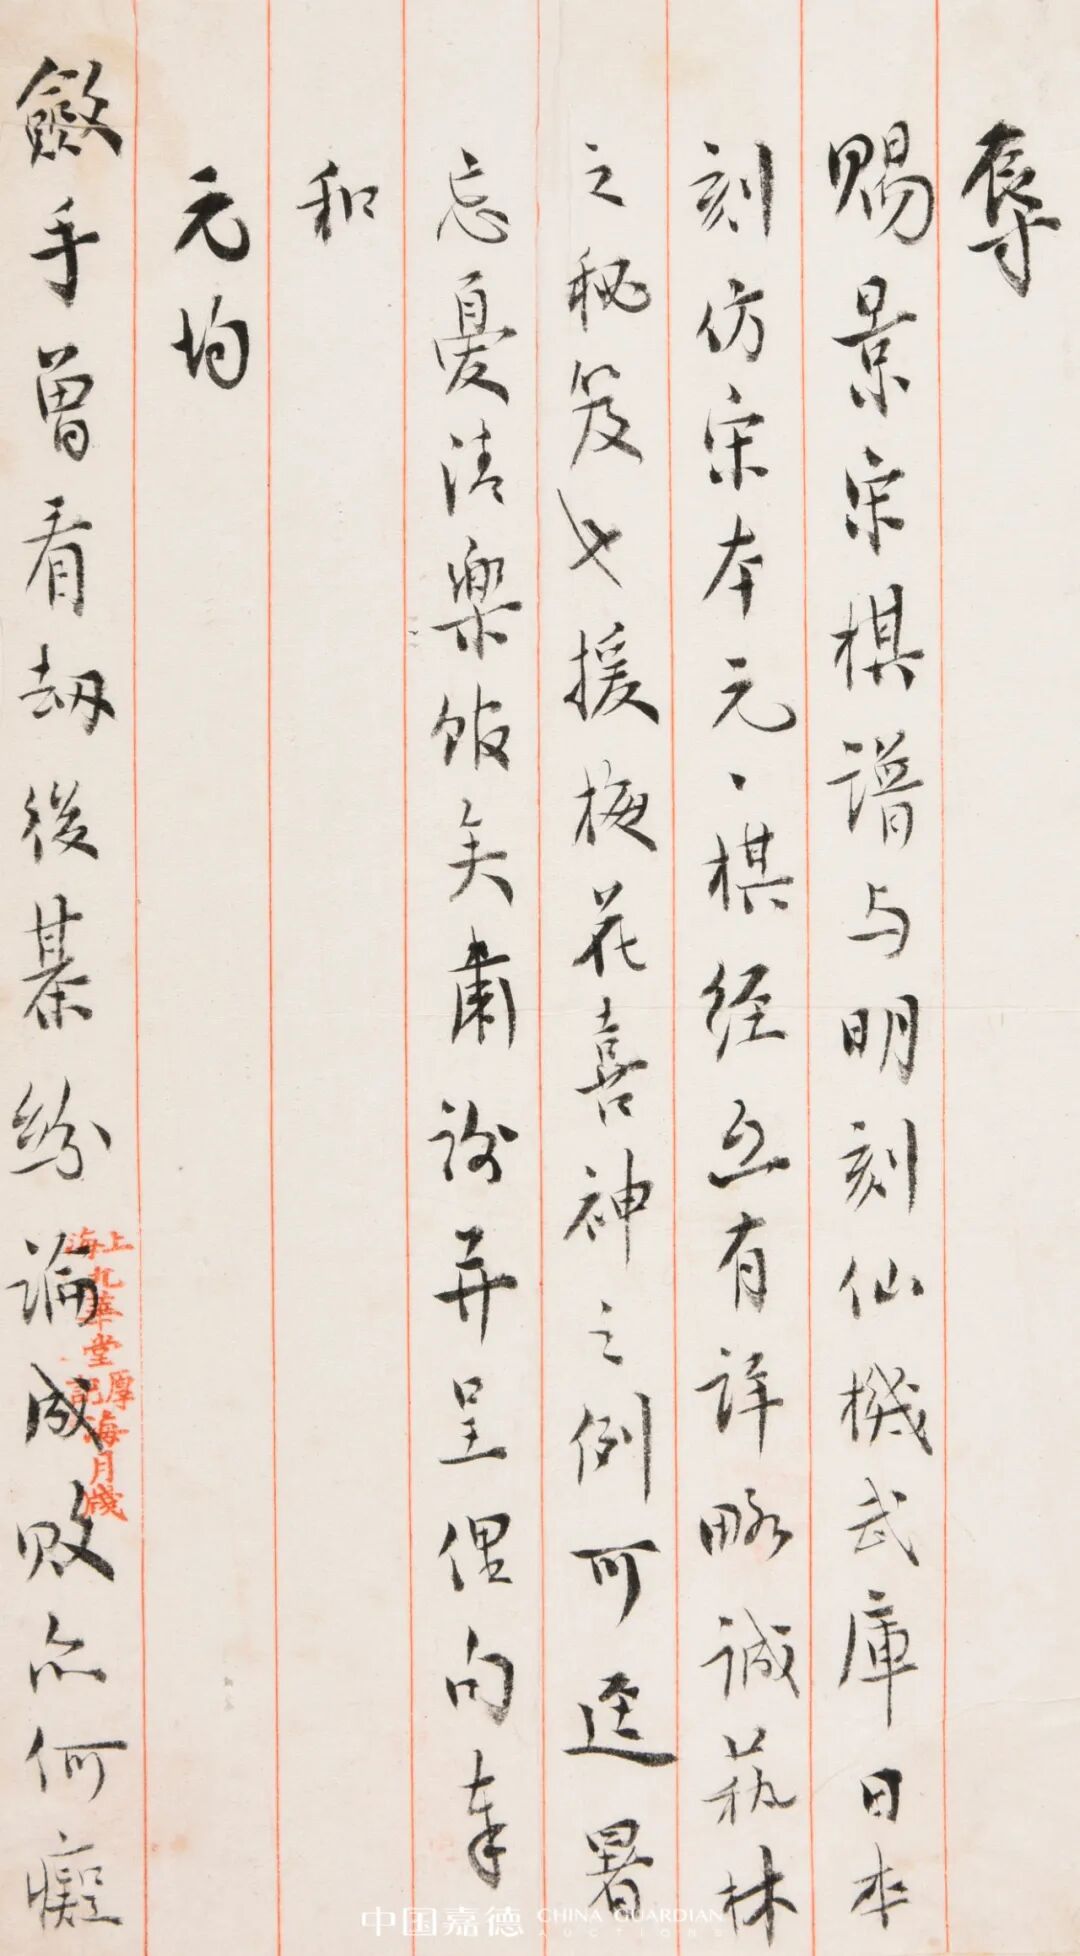 辱
賜景宋棋譜与明刻仙機武庫日本
刻仿宋本元、棋经互有詳略誠蓺林
之秘笈也援梅花喜神之例可逕署
忘憂清樂館矣肅謝并呈俚句奉
和
元均
斂手曾看劫後棊紛論成敗亦何癡
上海九華堂厚記海月箋
中国嘉德 CHINA GUARDIAN
AUCTIONS